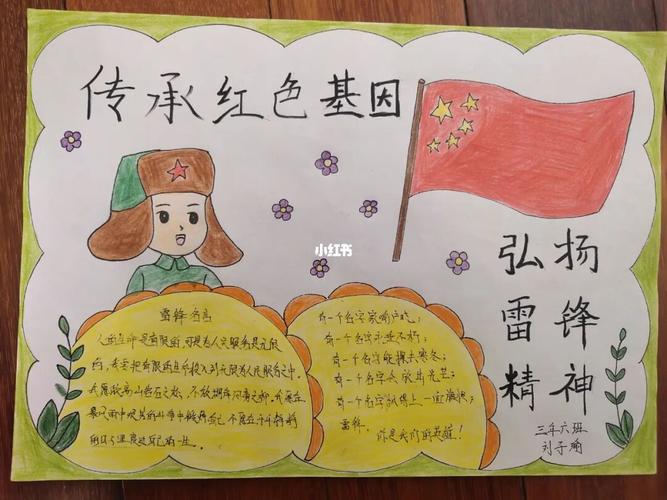 传承红色基因
小红书
弘扬
雷锋
精神
三年六班
雷锋名言
人的生命是有限的,可是为人民服务是无限
的,我要把有限的生命投入到无限为人民服务之中。
我愿做高山岩石之松,不做湖岸河旁之柳。我愿在
暴风雨中
有一个名字家喻户晓;
有一个名字永垂不朽;
有一个名字能
有一个名字会放出光芒;
有一个名字
雷锋,
你是我们的英雄!